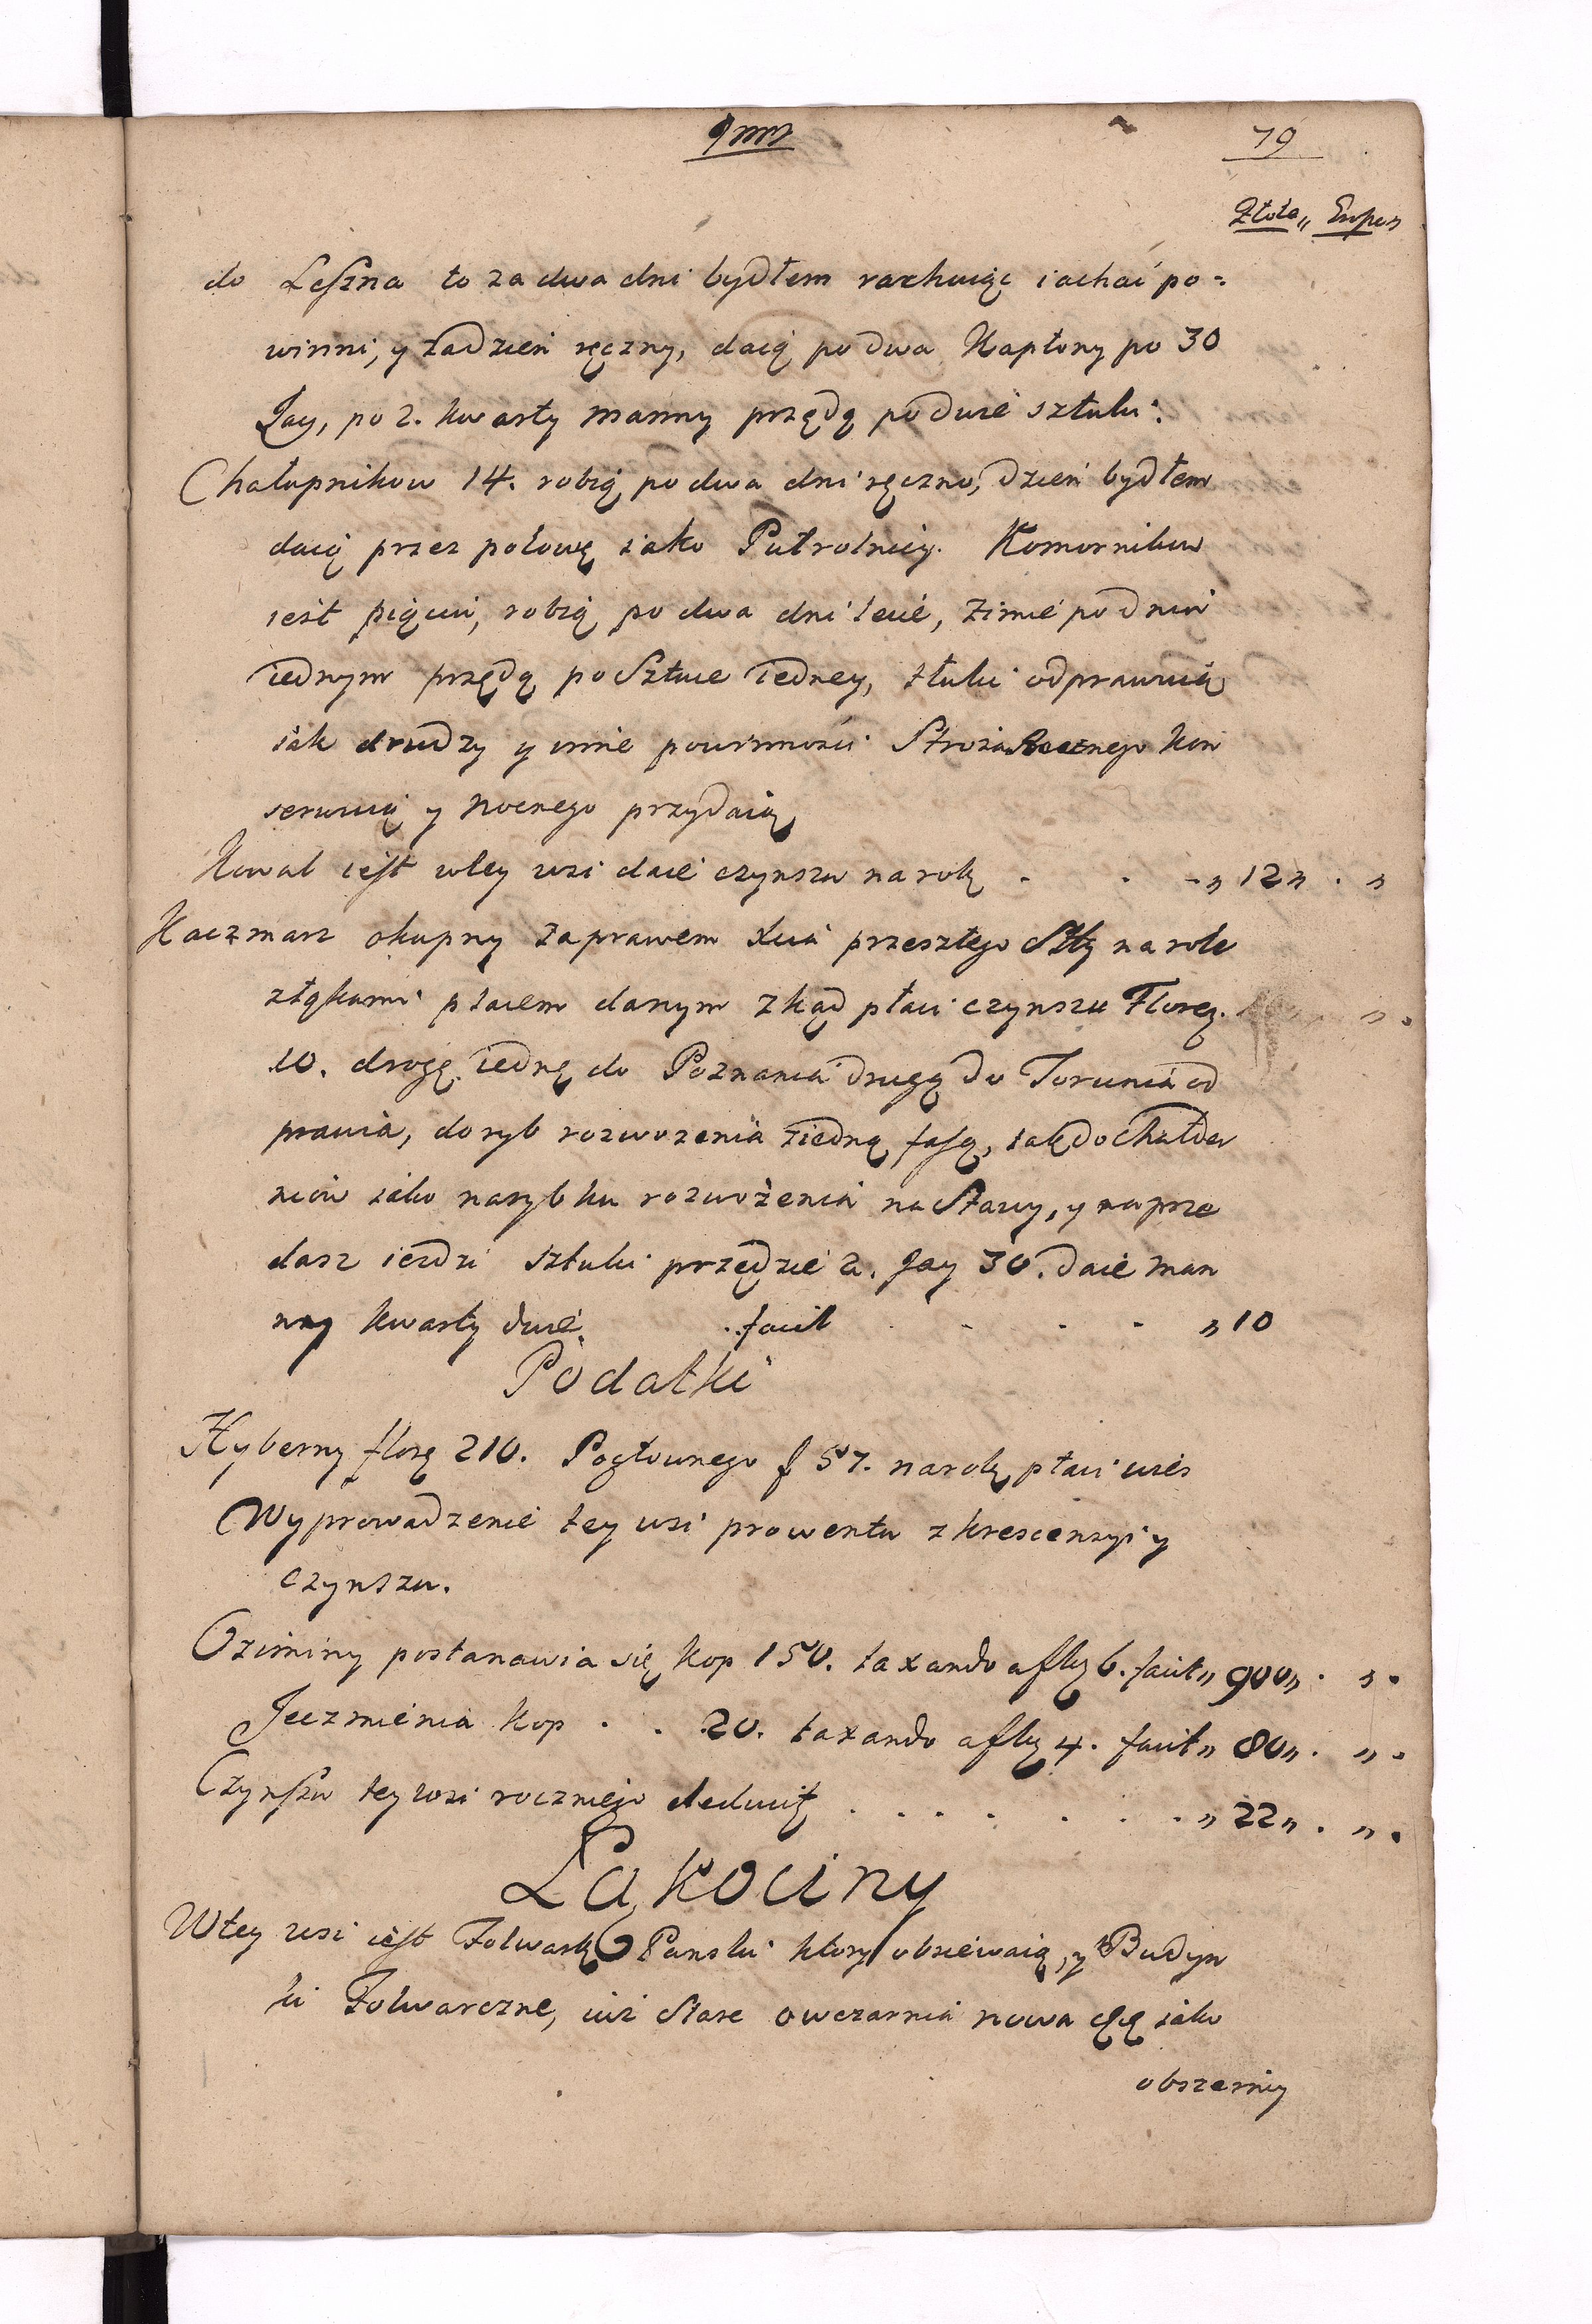 79
Złota „ Grosze
do Leszna to za dwa dni bydłem rachuiąc iachać po-
winni, y zadzień ręczny, daią po dwa Kapłony po 30
Jay, po 2. kwarty manny przędą po dwie sztuki.
Chałupnikow 14. robią po dwa dni ręczno, dzień bydłem
daią przez połowę iako Pułrolnicy. Komornikow
iest pięciu, robią po dwa dni lecie, Zimie po dniu
iednym przędą po Sztuce iedney, Tłuki odprawuią
iak drudzy y inne powinności Stroża Rocznego kon
serwuią y nocnego przydaią
Kowal iest wtey wsi daie czynszu na rok . . . „ 12 „ . „
Kaczmarz okupny za prawem Xcia przeszłego Stty na role
złąkami placem danym zkąd płaci czynszu Floreg.
10. drogę iednę do Poznania drugą do Torunia od
prawia, do ryb rozwozenia ziedną fasą, tak do Chałder
nicow iako narybku rozwożenia na Stawy, y na prze
dasz iezdzi sztuki przędzie 2. Jay 30. daie man
ny kwarty dwie. . facit . . . . „ 10
Podatki
Hyberny floreg 210. Pogłownego f 57. na rok płaci wies
Wyprowadzenie tey wsi prowentu zkrescensyi y
czynszu.
Oziminy postanawia się kop 150. taxando a fleg 6. facit „ 900 „ . „ .
Jeczmienia kop . . 20. taxando a fleg 4. facit „ 80 „ . „ .
Czynszu tey wsi roczniego deducit . . . . . . . „ 22 „ . „ .
Łąkociny
Wtey wsi iest Folwark Panski ktory obsiewaią, y Budyn
ki Folwarczne, iuż Stare owczarnia nowa iako
obszerniy